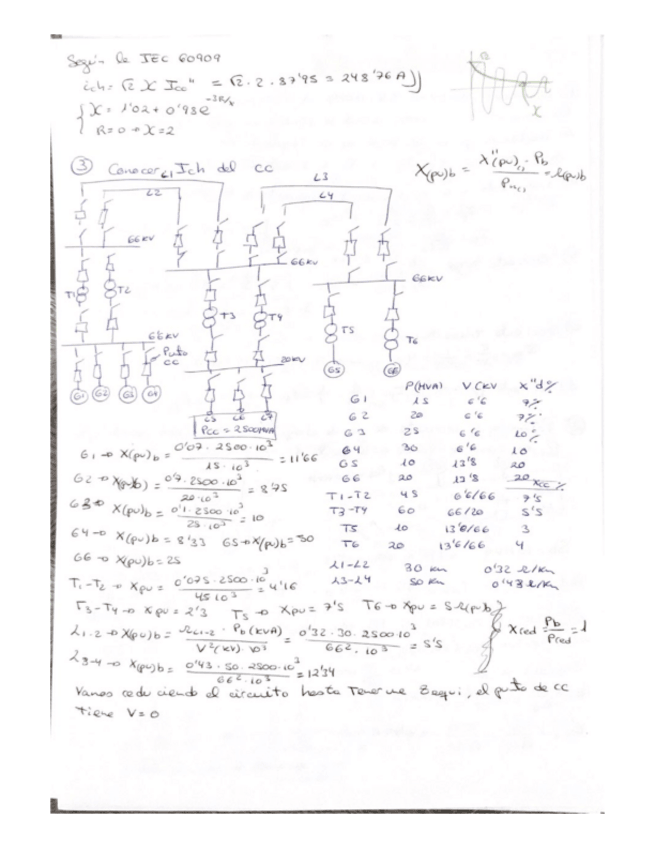 Según la IEC 60909
ich = √2 X Icc" = √2 . 2 . 87'95 = 248'76 A
X = 1'02 + 0'98 e^-3R/X
R=0 → X=2
X
③ Conocer Ich del cc
X(pu)b = X"(pu)n . Pb / Pn = Ω(pu)b
L1 L3
L2 L4
66KV
66KV
66KV
T1 T2
T3 T4
T5 T6
66KV
Punto
CC
20KV
G1 G2 G3 G4
G5 G6
L5 L6 L7
Pcc = 2500MVA
P(MVA) V(KV X"d%
G1 15 6'6 7%
G2 20 6'6 7%
G3 25 6'6 10%
G4 30 6'6 10
G5 10 13'8 20
G6 20 13'8 20
Xcc %
T1-T2 45 6'6/66 7'5
T3-T4 60 66/20 5'5
T5 10 13'8/66 3
T6 20 13'6/66 4
L1-L2 30 km 0'32 Ω/km
L3-L4 50 km 0'43 Ω/km
G1 → X(pu)b = 0'07 . 2500 . 10³ / 15 . 10³ = 11'66
G2 → X(pu)b = 0'7 . 2500 . 10³ / 20 . 10³ = 8'75
G3 → X(pu)b = 0'1 . 2500 . 10³ / 25 . 10³ = 10
G4 → X(pu)b = 8'33 G5 → X(pu)b = 50
G6 → X(pu)b = 25
T1-T2 → Xpu = 0'075 . 2500 . 10³ / 45 10³ = 4'16
T3-T4 → Xpu = 2'3 T5 → Xpu = 7'5 T6 → Xpu = 5 Ω(pu)b
Xred = Pb / Pred = 1
L1-2 → X(pu)b = ΩL1-2 . Pb (KVA) / V²(KV) 10³ = 0'32 . 30 . 2500 10³ / 66² . 10³ = 5'5
L3-4 → X(pu)b = 0'43 . 50 . 2500 . 10³ / 66² . 10³ = 12'34
Vamos reduciendo el circuito hasta tener una Zequi, el punto de cc
tiene V=0